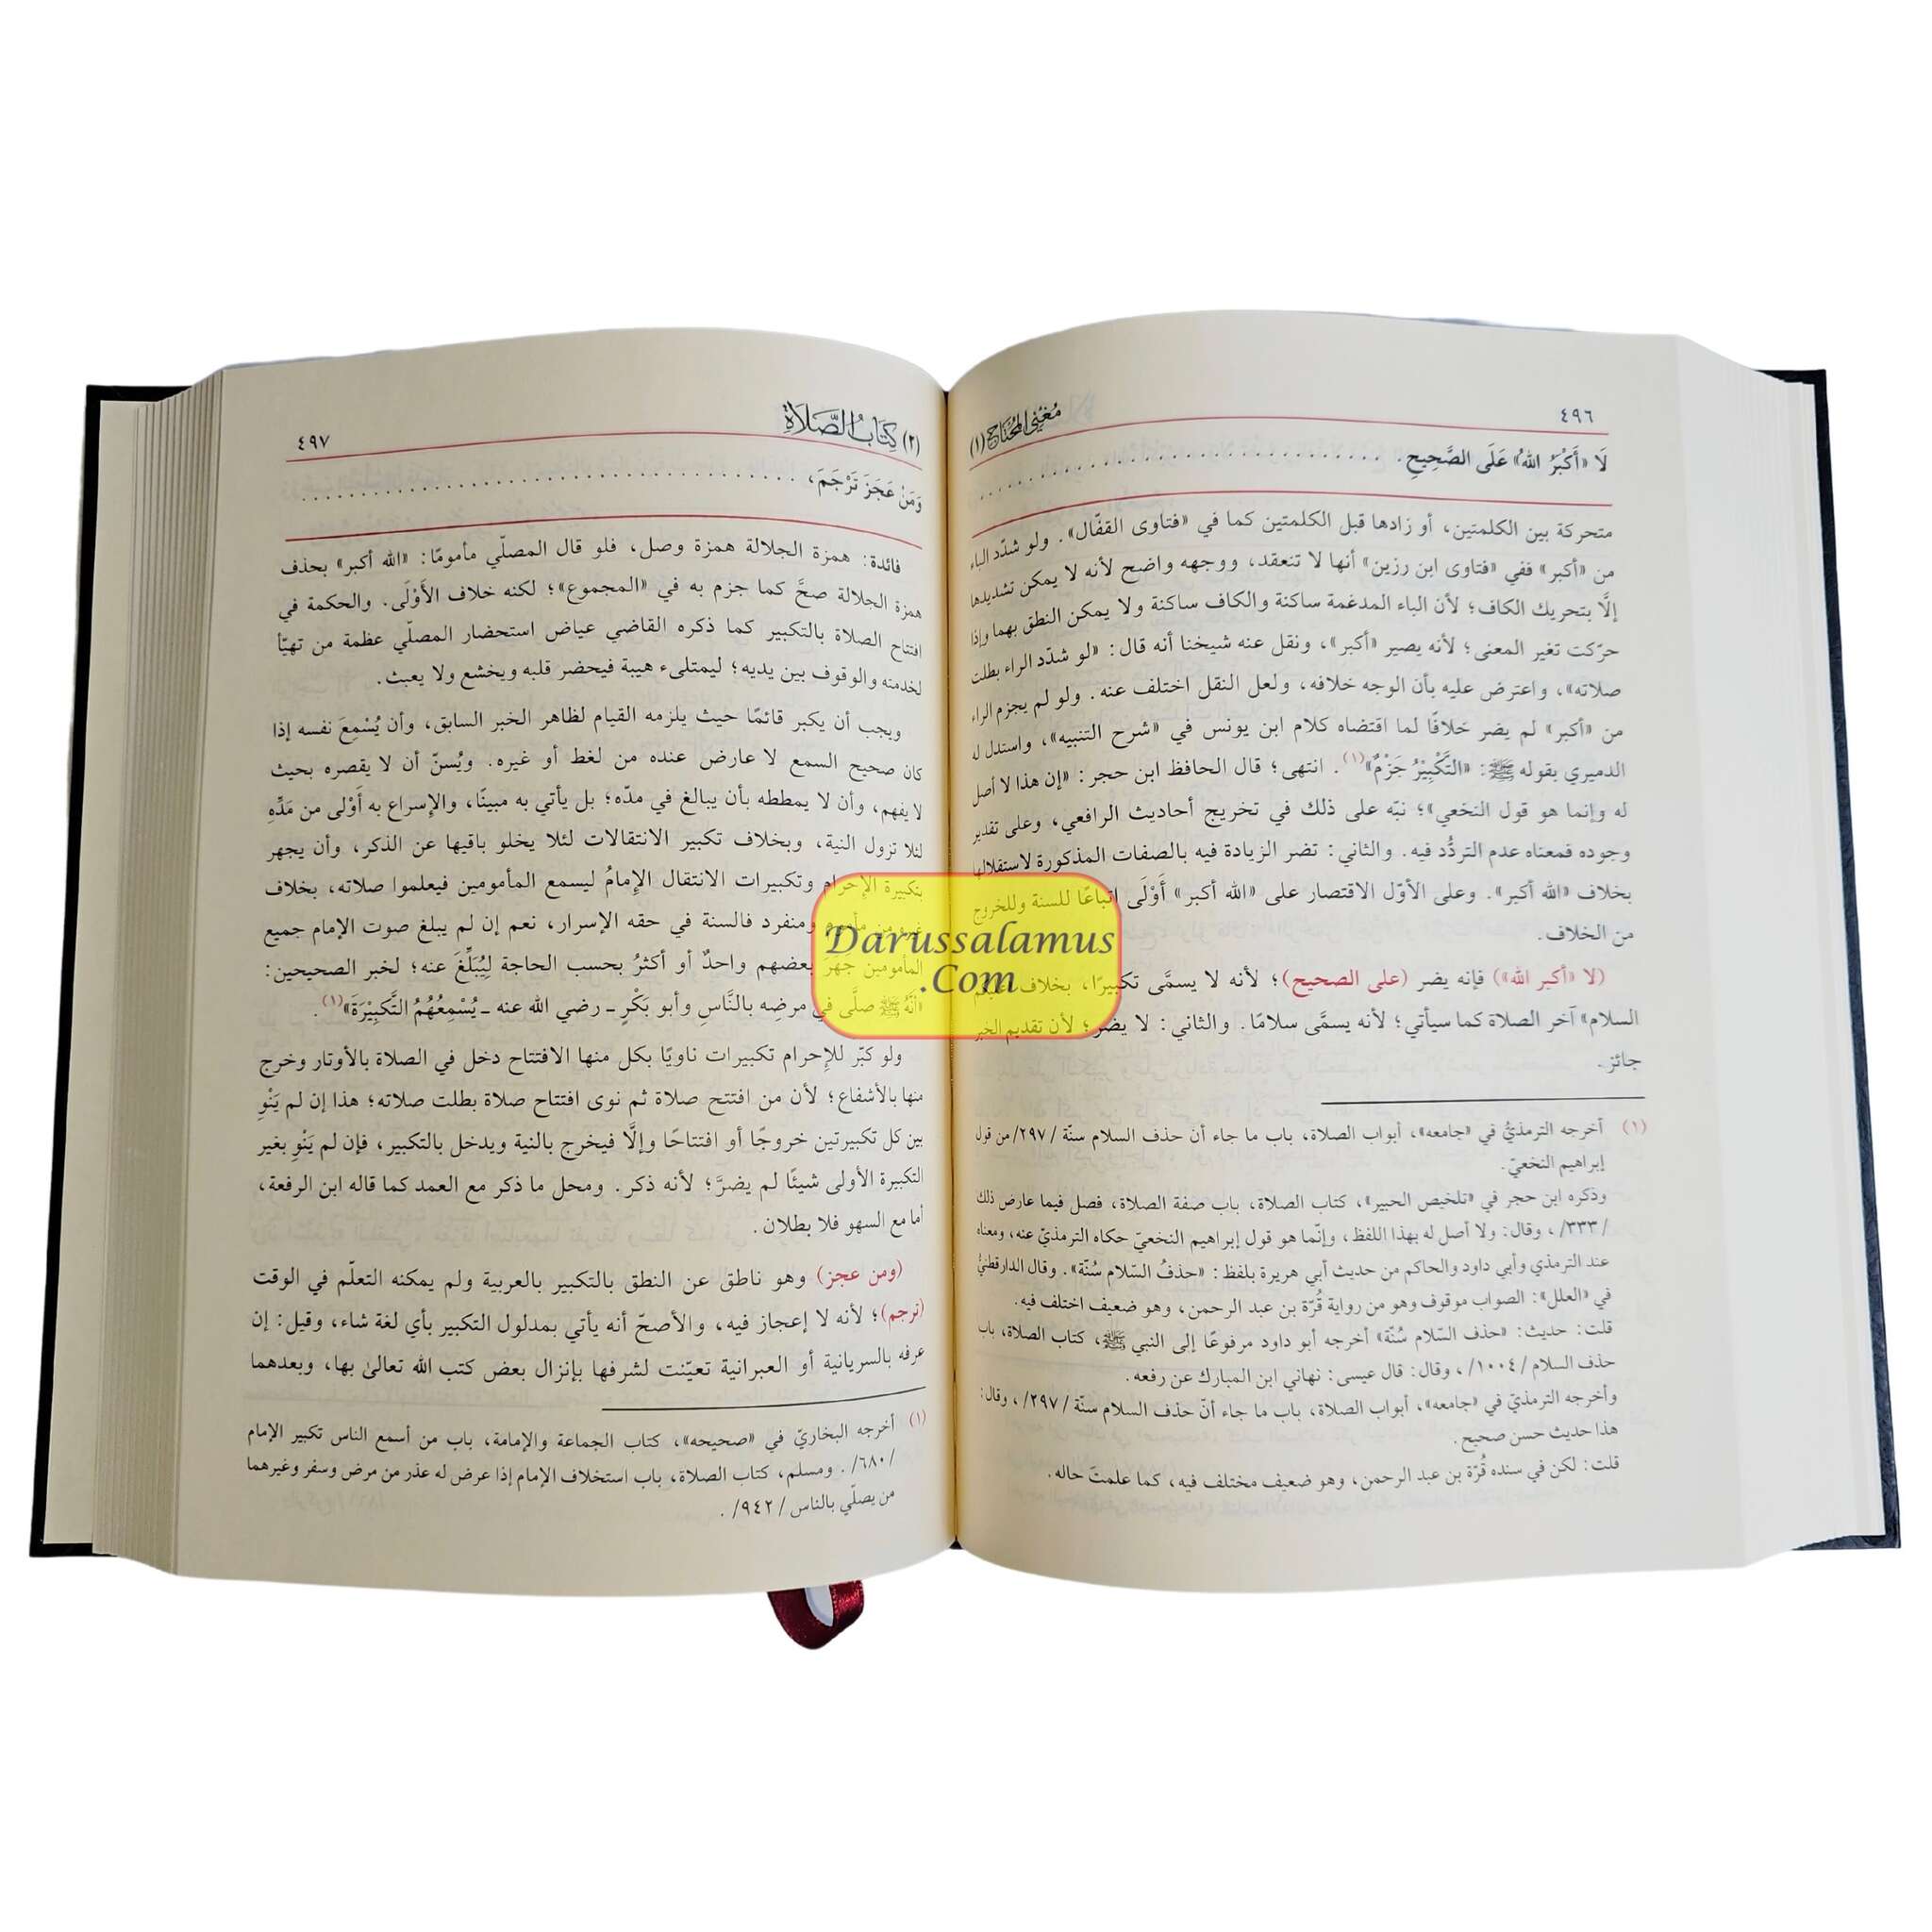 ٤٩٦
مُغْنِي المُحْتَاج (١)
لَا «أَكْبَرُ اللهُ» عَلَى الصَّحِيحِ. . . . . . . . . . . . . . . . . . . . . . . . . . . . . .
متحركة بين الكلمتين، أو زادها قبل الكلمتين كما في «فتاوى القفّال». ولو شدّد الباء
من «أكبر» ففي «فتاوى ابن رزين» أنها لا تنعقد، ووجهه واضح لأنه لا يمكن تشديدها
إلَّا بتحريك الكاف؛ لأن الباء المدغمة ساكنة والكاف ساكنة ولا يمكن النطق بهما وإذا
حرّكت تغير المعنى؛ لأنه يصير «أكبر»، ونقل عنه شيخنا أنه قال: «لو شدّد الراء بطلت
صلاته»، واعترض عليه بأن الوجه خلافه، ولعل النقل اختلف عنه. ولو لم يجزم الراء
من «أكبر» لم يضر خلافًا لما اقتضاه كلام ابن يونس في «شرح التنبيه»، واستدل له
الدميري بقوله ﷺ: «التَّكْبِيْرُ جَزْمٌ»(١). انتهى؛ قال الحافظ ابن حجر: «إن هذا لا أصل
له وإنما هو قول النخعي»؛ نبّه على ذلك في تخريج أحاديث الرافعي، وعلى تقدير
وجوده فمعناه عدم التردُّد فيه. والثاني: تضر الزيادة فيه بالصفات المذكورة لاستقلالها
بخلاف «الله أكبر». وعلى الأوّل الاقتصار على «الله أكبر» أَوْلَى اتباعًا للسنة وللخروج
من الخلاف.
(لا «أكبر الله») فإنه يضر (على الصحيح)؛ لأنه لا يسمَّى تكبيرًا، بخلاف «عليكم
السلام» آخر الصلاة كما سيأتي؛ لأنه يسمَّى سلامًا. والثاني: لا يضر؛ لأن تقديم الخبر
جائز.
(١) أخرجه الترمذيُّ في «جامعه»، أبواب الصلاة، باب ما جاء أن حذف السلام سنّة /٢٩٧/ من قول
إبراهيم النخعيّ.
وذكره ابن حجر في «تلخيص الحبير»، كتاب الصلاة، باب صفة الصلاة، فصل فيما عارض ذلك
/٣٣٣/، وقال: ولا أصل له بهذا اللفظ، وإنّما هو قول إبراهيم النخعيّ حكاه الترمذيّ عنه، ومعناه
عند الترمذي وأبي داود والحاكم من حديث أبي هريرة بلفظ: «حذفُ السّلام سُنّة». وقال الدارقطنيُّ
في «العلل»: الصواب موقوف وهو من رواية قُرّة بن عبد الرحمن، وهو ضعيف اختلف فيه.
قلت: حديث: «حذف السّلام سُنّة» أخرجه أبو داود مرفوعًا إلى النبي ﷺ، كتاب الصلاة، باب
حذف السلام /١٠٠٤/، وقال: قال عيسى: نهاني ابن المبارك عن رفعه.
وأخرجه الترمذيّ في «جامعه»، أبواب الصلاة، باب ما جاء أنّ حذف السلام سنّة /٢٩٧/، وقال:
هذا حديث حسن صحيح.
قلت: لكن في سنده قُرّة بن عبد الرحمن، وهو ضعيف مختلف فيه، كما علمتَ حاله.
(٢) كِتَابُ الصَّلَاةِ
٤٩٧
وَمَنْ عَجَزَ تَرْجَمَ، . . . . . . . . . . . . . . . . . . . . . . . . . . . . . . . . . . .
فائدة: همزة الجلالة همزة وصل، فلو قال المصلّي مأمومًا: «الله أكبر» بحذف
همزة الجلالة صحَّ كما جزم به في «المجموع»؛ لكنه خلاف الأَوْلَى. والحكمة في
افتتاح الصلاة بالتكبير كما ذكره القاضي عياض استحضار المصلّي عظمة من تهيّأ
لخدمته والوقوف بين يديه؛ ليمتلىء هيبة فيحضر قلبه ويخشع ولا يعبث.
ويجب أن يكبر قائمًا حيث يلزمه القيام لظاهر الخبر السابق، وأن يُسْمِعَ نفسه إذا
كان صحيح السمع لا عارض عنده من لغط أو غيره. ويُسنّ أن لا يقصره بحيث
لا يفهم، وأن لا يمططه بأن يبالغ في مدّه؛ بل يأتي به مبينًا، والإسراع به أَوْلى من مَدِّهِ
لئلا تزول النية، وبخلاف تكبير الانتقالات لئلا يخلو باقيها عن الذكر، وأن يجهر
بتكبيرة الإحرام وتكبيرات الانتقال الإمامُ ليسمع المأمومين فيعلموا صلاته، بخلاف
غيره من مأموم ومنفرد فالسنة في حقه الإسرار، نعم إن لم يبلغ صوت الإمام جميع
المأمومين جهر بعضهم واحدٌ أو أكثرُ بحسب الحاجة لِيُبَلِّغَ عنه؛ لخبر الصحيحين:
«أنَّهُ ﷺ صلَّى في مرضِه بالنَّاسِ وأبو بَكْرٍ ـ رضي الله عنه ـ يُسْمِعُهُمُ التَّكبِيْرَةَ»(١).
ولو كبّر للإحرام تكبيرات ناويًا بكل منها الافتتاح دخل في الصلاة بالأوتار وخرج
منها بالأشفاع؛ لأن من افتتح صلاة ثم نوى افتتاح صلاة بطلت صلاته؛ هذا إن لم يَنْوِ
بين كل تكبيرتين خروجًا أو افتتاحًا وإلَّا فيخرج بالنية ويدخل بالتكبير، فإن لم يَنْوِ بغير
التكبيرة الأولى شيئًا لم يضرَّ؛ لأنه ذكر. ومحل ما ذكر مع العمد كما قاله ابن الرفعة،
أما مع السهو فلا بطلان.
(ومن عجز) وهو ناطق عن النطق بالتكبير بالعربية ولم يمكنه التعلّم في الوقت
(ترجم)؛ لأنه لا إعجاز فيه، والأصحّ أنه يأتي بمدلول التكبير بأي لغة شاء، وقيل: إن
عرفه بالسريانية أو العبرانية تعيّنت لشرفها بإنزال بعض كتب الله تعالىٰ بها، وبعدهما
(١) أخرجه البخاريّ في «صحيحه»، كتاب الجماعة والإمامة، باب من أسمع الناس تكبير الإمام
/٦٨٠/. ومسلم، كتاب الصلاة، باب استخلاف الإمام إذا عرض له عذر من مرض وسفر وغيرهما
من يصلّي بالناس /٩٤٢/.
Darussalamus
.Com